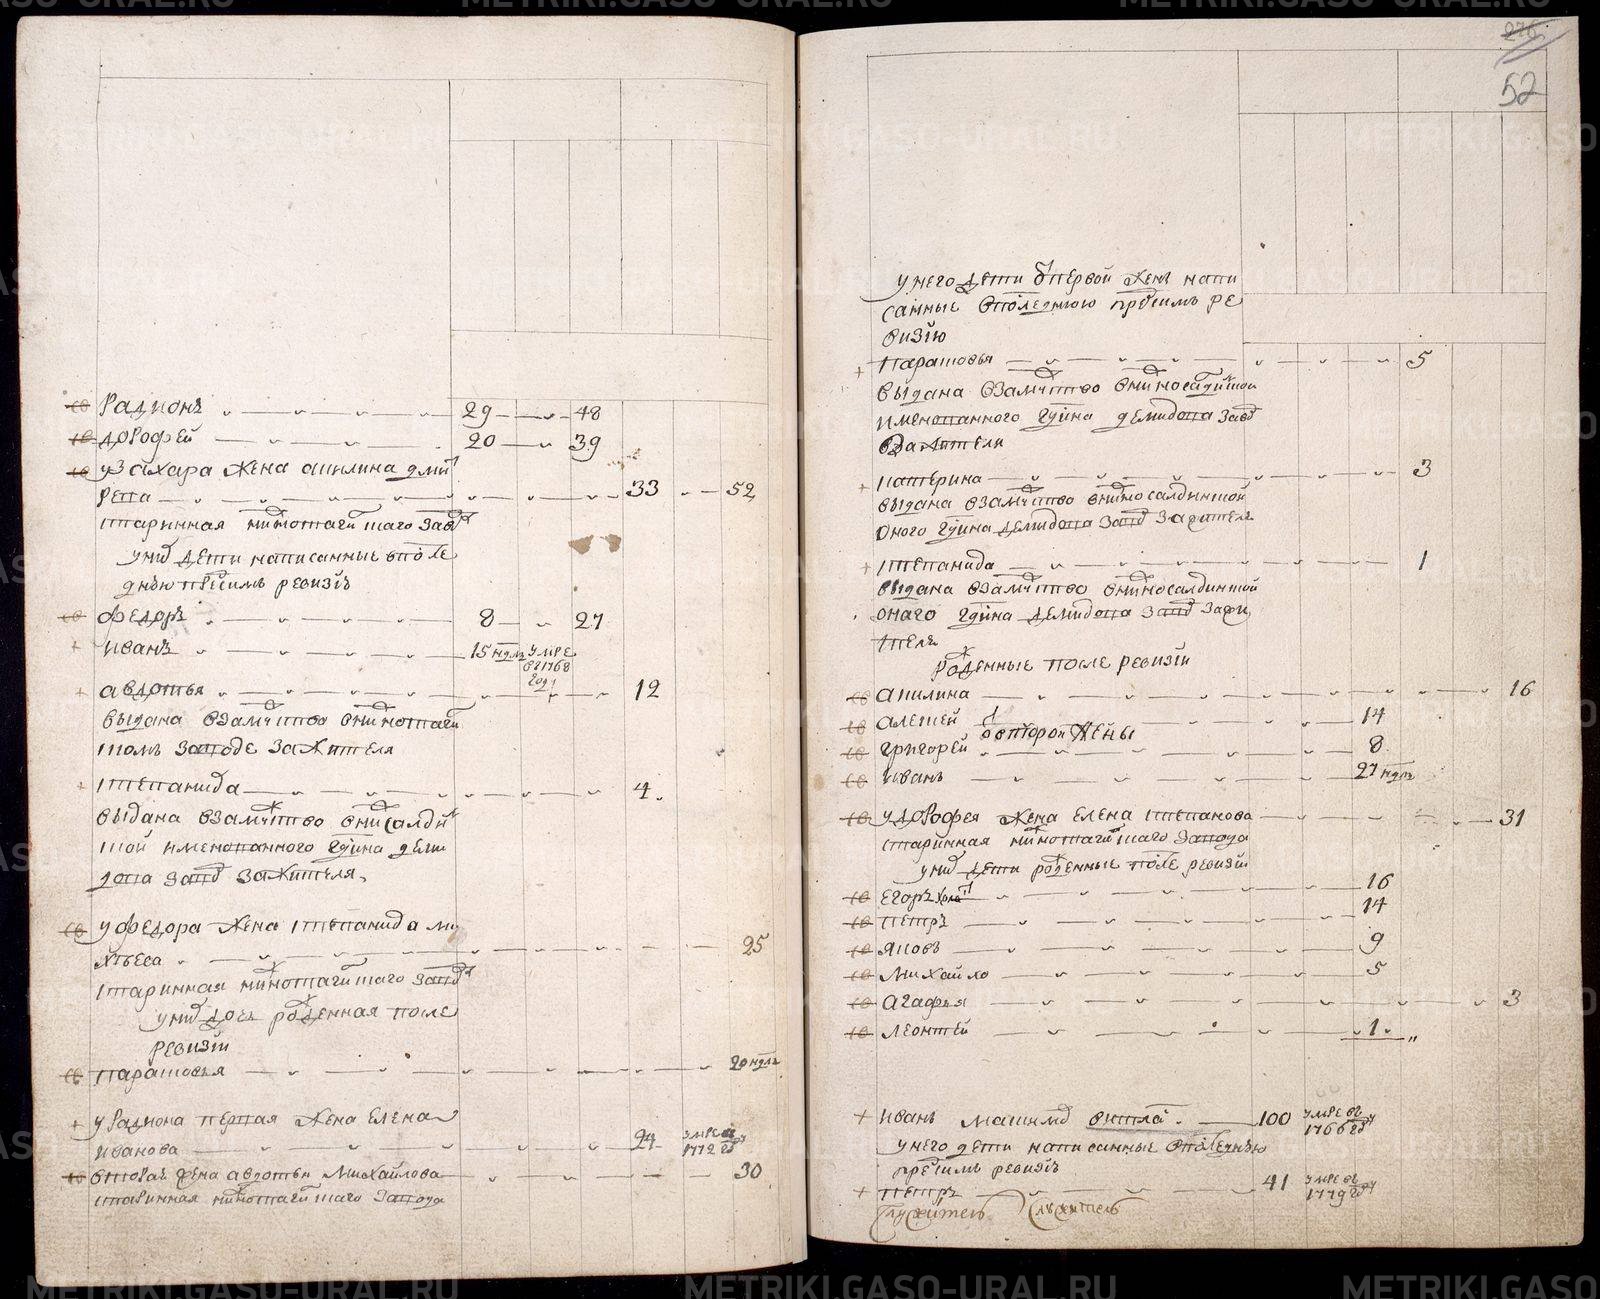 Радионъ 29 48
дорофей 20 39
У Захара жена акилина дмит
рева 33 52
старинная нижнотагилскаго завода
у них дети написанные в после
днъю пред сим ревизiъ
Федоръ 8 27
Иванъ 15 недель умре
в 1768
году
авдотья 12
выдана в замужство в нижнотагил
ском заводе за жителя
степанида 4
выдана в замужство в нижнесалдин
ской имянованного господина деми
дова завод за жителя
у федора жена степанида ми
хъева 25
старинная нижнотагилскаго завода
у них дочь рожденная после
ревизiи
парасковья 20 недель
у Радиона первая жена елена
Иванова 24 умре в
1772 году
вторая жена авдотья Михайлова 30
старинная нижнотагилскаго завода
52
у него дети от первой жены напи
санные в последнюю пред сим ре
визiю
парасковья 5
выдана в замужство в нижносалдинской
имянованного господина демидова завод
за жителя
катерина 3
выдана в замужство в нижносалдинской
оного господина демидова завод за жителя
степанида 1
выдана в замужство в нижносалдинской
онаго господина демидова завод за жи
теля
рожденные после ревизiи
акилина 16
алексей 14
от второй жены
григорей 8
иванъ 27 недель
у дорофея жена елена степанова 31
старинная нижнотагилскаго завода
у них дети рожденные после ревизiи
егоръ 16
петръ 14
яковъ 9
михайло 5
агафья 3
леонтей 1
иванъ 100 умре в
1766 году
у него дети написанные в последнъю
пред сим ревизiъ
петръ 41 умре в
1779 году
Служитель Служитель
METRIKI.GASO-URAL.RU